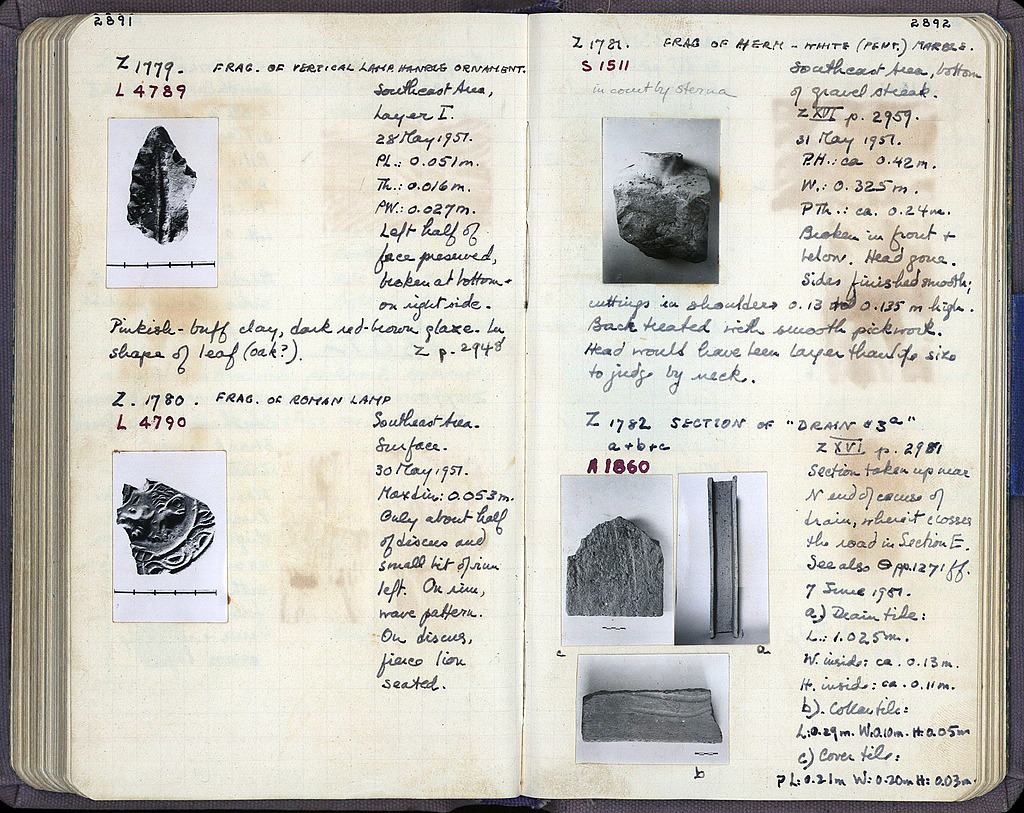 2891
Z 1779. FRAG. OF VERTICAL LAMP HANDLE ORNAMENT.
L 4789
Southeast Area,
Layer I.
28 May 1951.
PL.: 0.051 m.
Th.: 0.016 m.
PW.: 0.027 m.
Left half of
face preserved,
broken at bottom +
on right side.
Pinkish-buff clay, dark red-brown glaze. In
shape of leaf (oak?). Z p. 2948
Z. 1780. FRAG. OF ROMAN LAMP
L 4790
Southeast Area.
Surface.
30 May 1951.
Max dim: 0.053 m.
Only about half
of discus and
small bit of rim
left. On rim,
wave pattern.
On discus,
fierce lion
seated.
2892
Z 1781. FRAG OF HERM - WHITE (PENT.) MARBLE.
S 1511
in court by
Southeast Area, bottom
of gravel streak.
Z XVI p. 2959.
31 May 1951.
P.H.: ca 0.42 m.
W.: 0.325 m.
P Th.: ca. 0.24 m.
Broken in front +
below. Head gone.
Sides finished smooth;
cuttings in shoulders 0.13 to 0.135 m high.
Back treated with smooth pickwork.
Head would have been larger than life size
to judge by neck.
Z 1782 SECTION OF "DRAIN #3a"
a + b + c
A 1860
Z XVI p. 2981
Section taken up near
N end of course of
drain, where it crosses
the road in Section E.
See also Θ pp. 1271 ff.
7 June 1951.
a) Drain tile:
L.: 1.025 m.
W. inside: ca. 0.13 m.
H. inside: ca. 0.11 m.
b). Collar tile:
L: 0.29 m. W: 0.10 m. H: 0.05 m
c) Cover tile:
PL: 0.21 m W: 0.20 m H: 0.03 m.
c
a
b